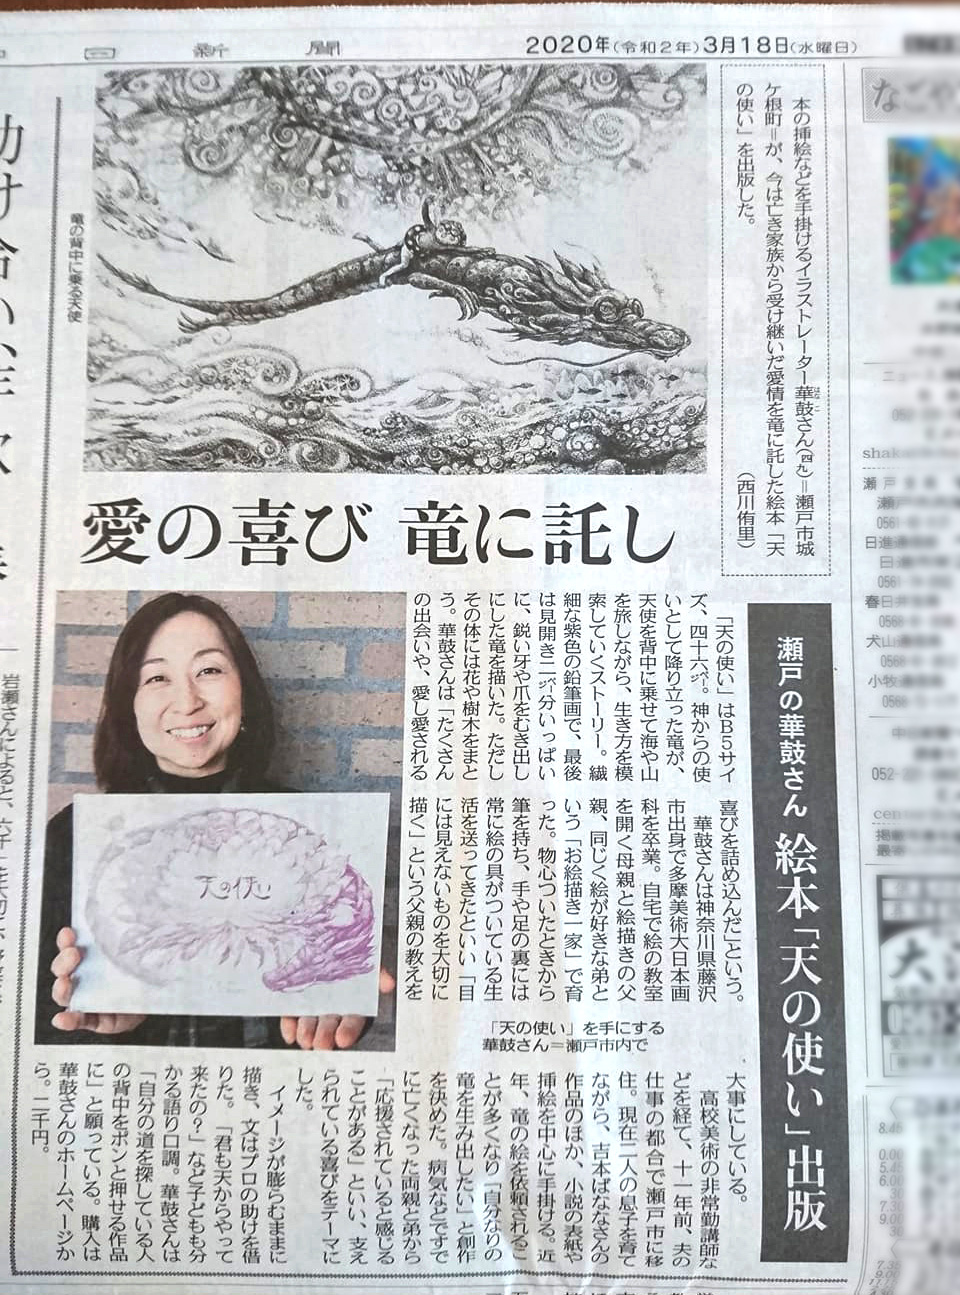 日新聞
2020年(令和2年)3月18日(水曜日)
本の挿絵などを手掛けるイラストレーター華鼓さん(四九)=瀬戸市城
ケ根町=が、今は亡き家族から受け継いだ愛情を竜に託した絵本「天
の使い」を出版した。
(西川侑里)
竜の背中に乗る天使
愛の喜び 竜に託し
瀬戸の華鼓さん 絵本「天の使い」出版
「天の使い」はB5サイ
ズ、四十六㌻。神からの使
いとして降り立った竜が、
天使を背中に乗せて海や山
を旅しながら、生き方を模
索していくストーリー。繊
細な紫色の鉛筆画で、最後
は見開き二㌻分いっぱい
に、鋭い牙や爪をむき出し
にした竜を描いた。ただし
その体には花や樹木をまと
う。華鼓さんは「たくさん
の出会いや、愛し愛される
喜びを詰め込んだ」という。
華鼓さんは神奈川県藤沢
市出身で多摩美術大日本画
科を卒業。自宅で絵の教室
を開く母親と絵描きの父
親、同じく絵が好きな弟と
いう「お絵描き一家」で育
った。物心ついたときから
筆を持ち、手や足の裏には
常に絵の具がついている生
活を送ってきたといい、「目
には見えないものを大切に
描く」という父親の教えを
天の使い
「天の使い」を手にする
華鼓さん=瀬戸市内で
大事にしている。
高校美術の非常勤講師な
どを経て、十一年前、夫の
仕事の都合で瀬戸市に移
住。現在二人の息子を育て
ながら、吉本ばななさんの
作品のほか、小説の表紙や
挿絵を中心に手掛ける。近
年、竜の絵を依頼されるこ
とが多くなり「自分なりの
竜を生み出したい」と創作
を決めた。病気などですで
に亡くなった両親と弟から
「応援されていると感じる
ことがある」といい、支え
られている喜びをテーマに
した。
イメージが膨らむままに
描き、文はプロの助けを借
りた。「君も天からやって
来たの?」など子どもも分
かる語り口調。華鼓さんは
「自分の道を探している人
の背中をポンと押せる作品
に」と願っている。購入は
華鼓さんのホームページか
ら。二千円。
岩瀬さんによると、
なごや
瀬戸
日進
春日井
犬山
小牧